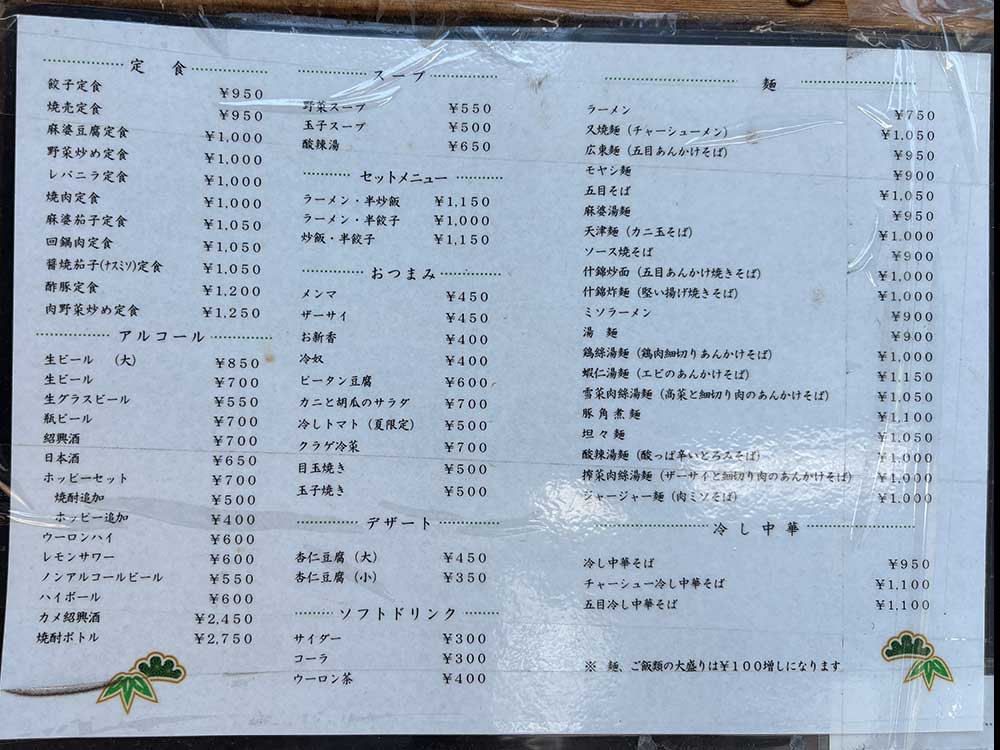 定 食
餃子定食 ¥950
焼売定食 ¥950
麻婆豆腐定食 ¥1,000
野菜炒め定食 ¥1,000
レバニラ定食 ¥1,000
焼肉定食 ¥1,000
麻婆茄子定食 ¥1,050
回鍋肉定食 ¥1,050
醤焼茄子(ナスミソ)定食 ¥1,050
酢豚定食 ¥1,200
肉野菜炒め定食 ¥1,250
アルコール
生ビール (大) ¥850
生ビール ¥700
生グラスビール ¥550
瓶ビール ¥700
紹興酒 ¥700
日本酒 ¥650
ホッピーセット ¥700
焼酎追加 ¥500
ホッピー追加 ¥400
ウーロンハイ ¥600
レモンサワー ¥600
ノンアルコールビール ¥550
ハイボール ¥600
カメ紹興酒 ¥2,450
焼酎ボトル ¥2,750
スープ
野菜スープ ¥550
玉子スープ ¥500
酸辣湯 ¥650
セットメニュー
ラーメン・半炒飯 ¥1,150
ラーメン・半餃子 ¥1,000
炒飯・半餃子 ¥1,150
おつまみ
メンマ ¥450
ザーサイ ¥450
お新香 ¥400
冷奴 ¥400
ピータン豆腐 ¥600
カニと胡瓜のサラダ ¥700
冷しトマト (夏限定) ¥500
クラゲ冷菜 ¥700
目玉焼き ¥500
玉子焼き ¥500
デザート
杏仁豆腐 (大) ¥450
杏仁豆腐 (小) ¥350
ソフトドリンク
サイダー ¥300
コーラ ¥300
ウーロン茶 ¥400
麺
ラーメン ¥750
叉焼麺 (チャーシューメン) ¥1,050
広東麺 (五目あんかけそば) ¥950
モヤシ麺 ¥900
五目そば ¥1,050
麻婆湯麺 ¥950
天津麺 (カニ玉そば) ¥1,000
ソース焼そば ¥900
什錦炒面 (五目あんかけ焼きそば) ¥1,000
什錦炸麺 (堅い揚げ焼きそば) ¥1,000
ミソラーメン ¥900
湯 麺 ¥900
鶏絲湯麺 (鶏肉細切りあんかけそば) ¥1,000
蝦仁湯麺 (エビのあんかけそば) ¥1,150
雪菜肉絲湯麺 (高菜と細切り肉のあんかけそば) ¥1,050
豚角煮麺 ¥1,100
坦々麺 ¥1,050
酸辣湯麺 (酸っぱ辛いとろみそば) ¥1,000
搾菜肉絲湯麺 (ザーサイと細切り肉のあんかけそば) ¥1,000
ジャージャー麺 (肉ミソそば) ¥1,000
冷し中華
冷し中華そば ¥950
チャーシュー冷し中華そば ¥1,100
五目冷し中華そば ¥1,100
※ 麺、ご飯類の大盛りは¥100増しになります